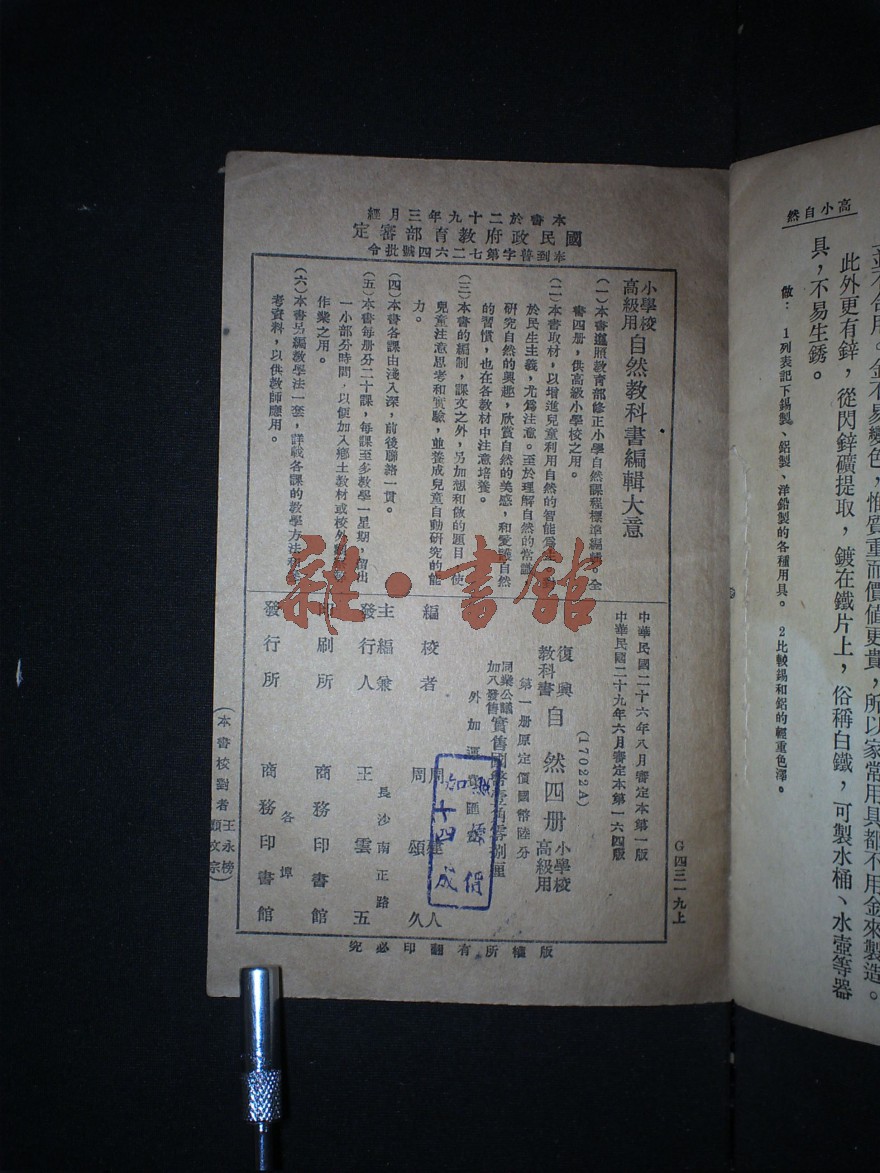 高小自然
並不合用。金不易變色，惟質重而價值更貴，所以家常用具都不用金來製造。
此外更有鋅，從閃鋅礦提取，鍍在鐵片上，俗稱白鐵，可製水桶、水壺等器
具，不易生銹。
做： 1列表記下錫製、鋁製、洋鉛製的各種用具。 2比較錫和鋁的輕重色澤。
本書於二十九年三月經
國民政府教育部審定
奉到普字第七二六四號批令
小學校高級用 自然教科書編輯大意
(一)本書遵照教育部修正小學自然課程標準編輯。全
書四册，供高級小學校之用。
(二)本書取材，以增進兒童利用自然的智能爲主，
於民生主義，尤爲注意。至於理解自然的常識，
研究自然的興趣，欣賞自然的美感，和愛護自然
的習慣，也在各教材中注意培養。
(三)本書的編制，課文之外，另加想和做的題目，使
兒童注意思考和實驗，並養成兒童自動研究的能
力。
(四)本書各課由淺入深，前後聯絡一貫。
(五)本書每册分二十課，每課至多教學一星期，留出
一小部分時間，以便加入鄉土教材或校外
作業之用。
(六)本書另編教學法一套，詳載各課的教學方法和參
考資料，以供教師應用。
G四三一九上
中華民國二十六年八月審定本第一版
中華民國二十九年六月審定本第一六四版
(17022A)
復興教科書 自然四册 小學校高級用
第一册原定價國幣陸分
同業公議加入發售 實售國幣壹角零捌厘
外加運費匯費
編校者 周建人 周頌久
主編兼發行人 王雲五 長沙南正路
印刷所 商務印書館
發行所 各埠 商務印書館
(本書校對者 王永榜 顏文宗)
版權所有翻印必究
照價
加十四成
雜·書館